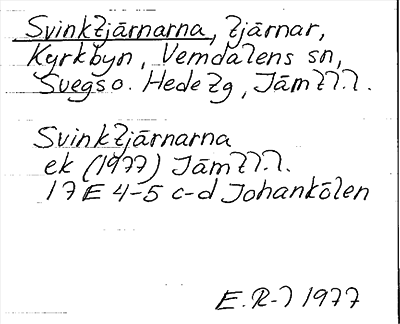 Svinktjärnarna, tjärnar,
Kyrkbyn, Vemdalens sn,
Svegs o. Hede tg, Jämtl.l.
Svinktjärnarna
ek (1977) Jämtl.l.
17E 4-5 c-d Johankölen
E.R-l 1977